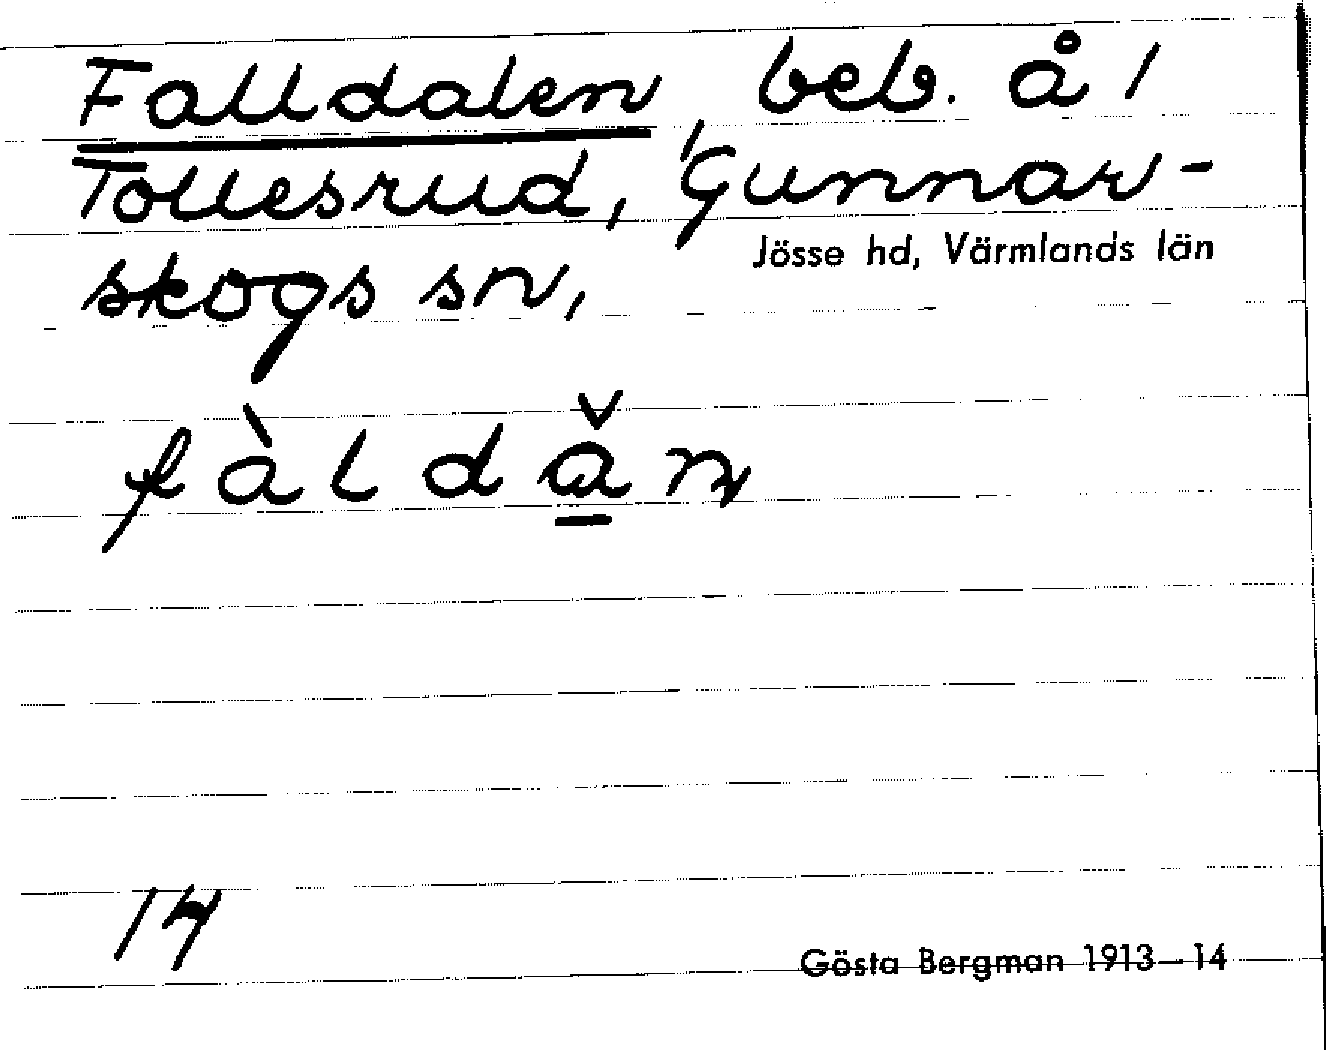 Falldalen, beb. å 1
Tollesrud, Gunnar-
Jösse hd, Värmlands län
skogs sn,
fàldǎn
14
Gösta Bergman 1913—14